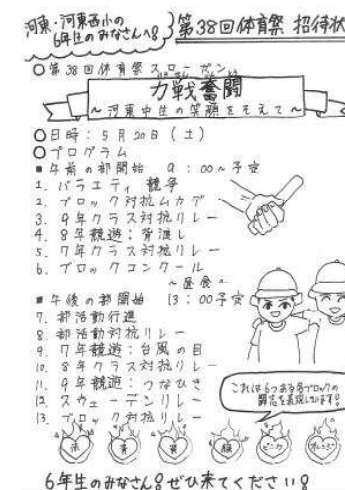 河東・河東西小の
6年生のみなさんへ!!
第38回体育祭 招待状
○第38回体育祭スローガン
力戦奮闘
～河東中生の笑顔をそえて～
○日時：5月20日(土)
○プログラム
■午前の部開始 9：00～予定
1. バラエティ競争
2. ブロック対抗ムカデ
3. 9年クラス対抗リレー
4. 8年競遊：背渡し
5. 7年クラス対抗リレー
6. ブロックコンクール
～昼食～
■午後の部開始 13：00予定
7. 部活動行進
8. 部活動対抗リレー
9. 7年競遊：台風の目
10. 8年クラス対抗リレー
11. 9年競遊：つなひき
12. スウェーデンリレー
13. ブロック対抗リレー
これは6つある各ブロックの
闘志を表現しています!!
赤 青 黄 緑 ピンク オレンジ
6年生のみなさん!!ぜひ来てください!!